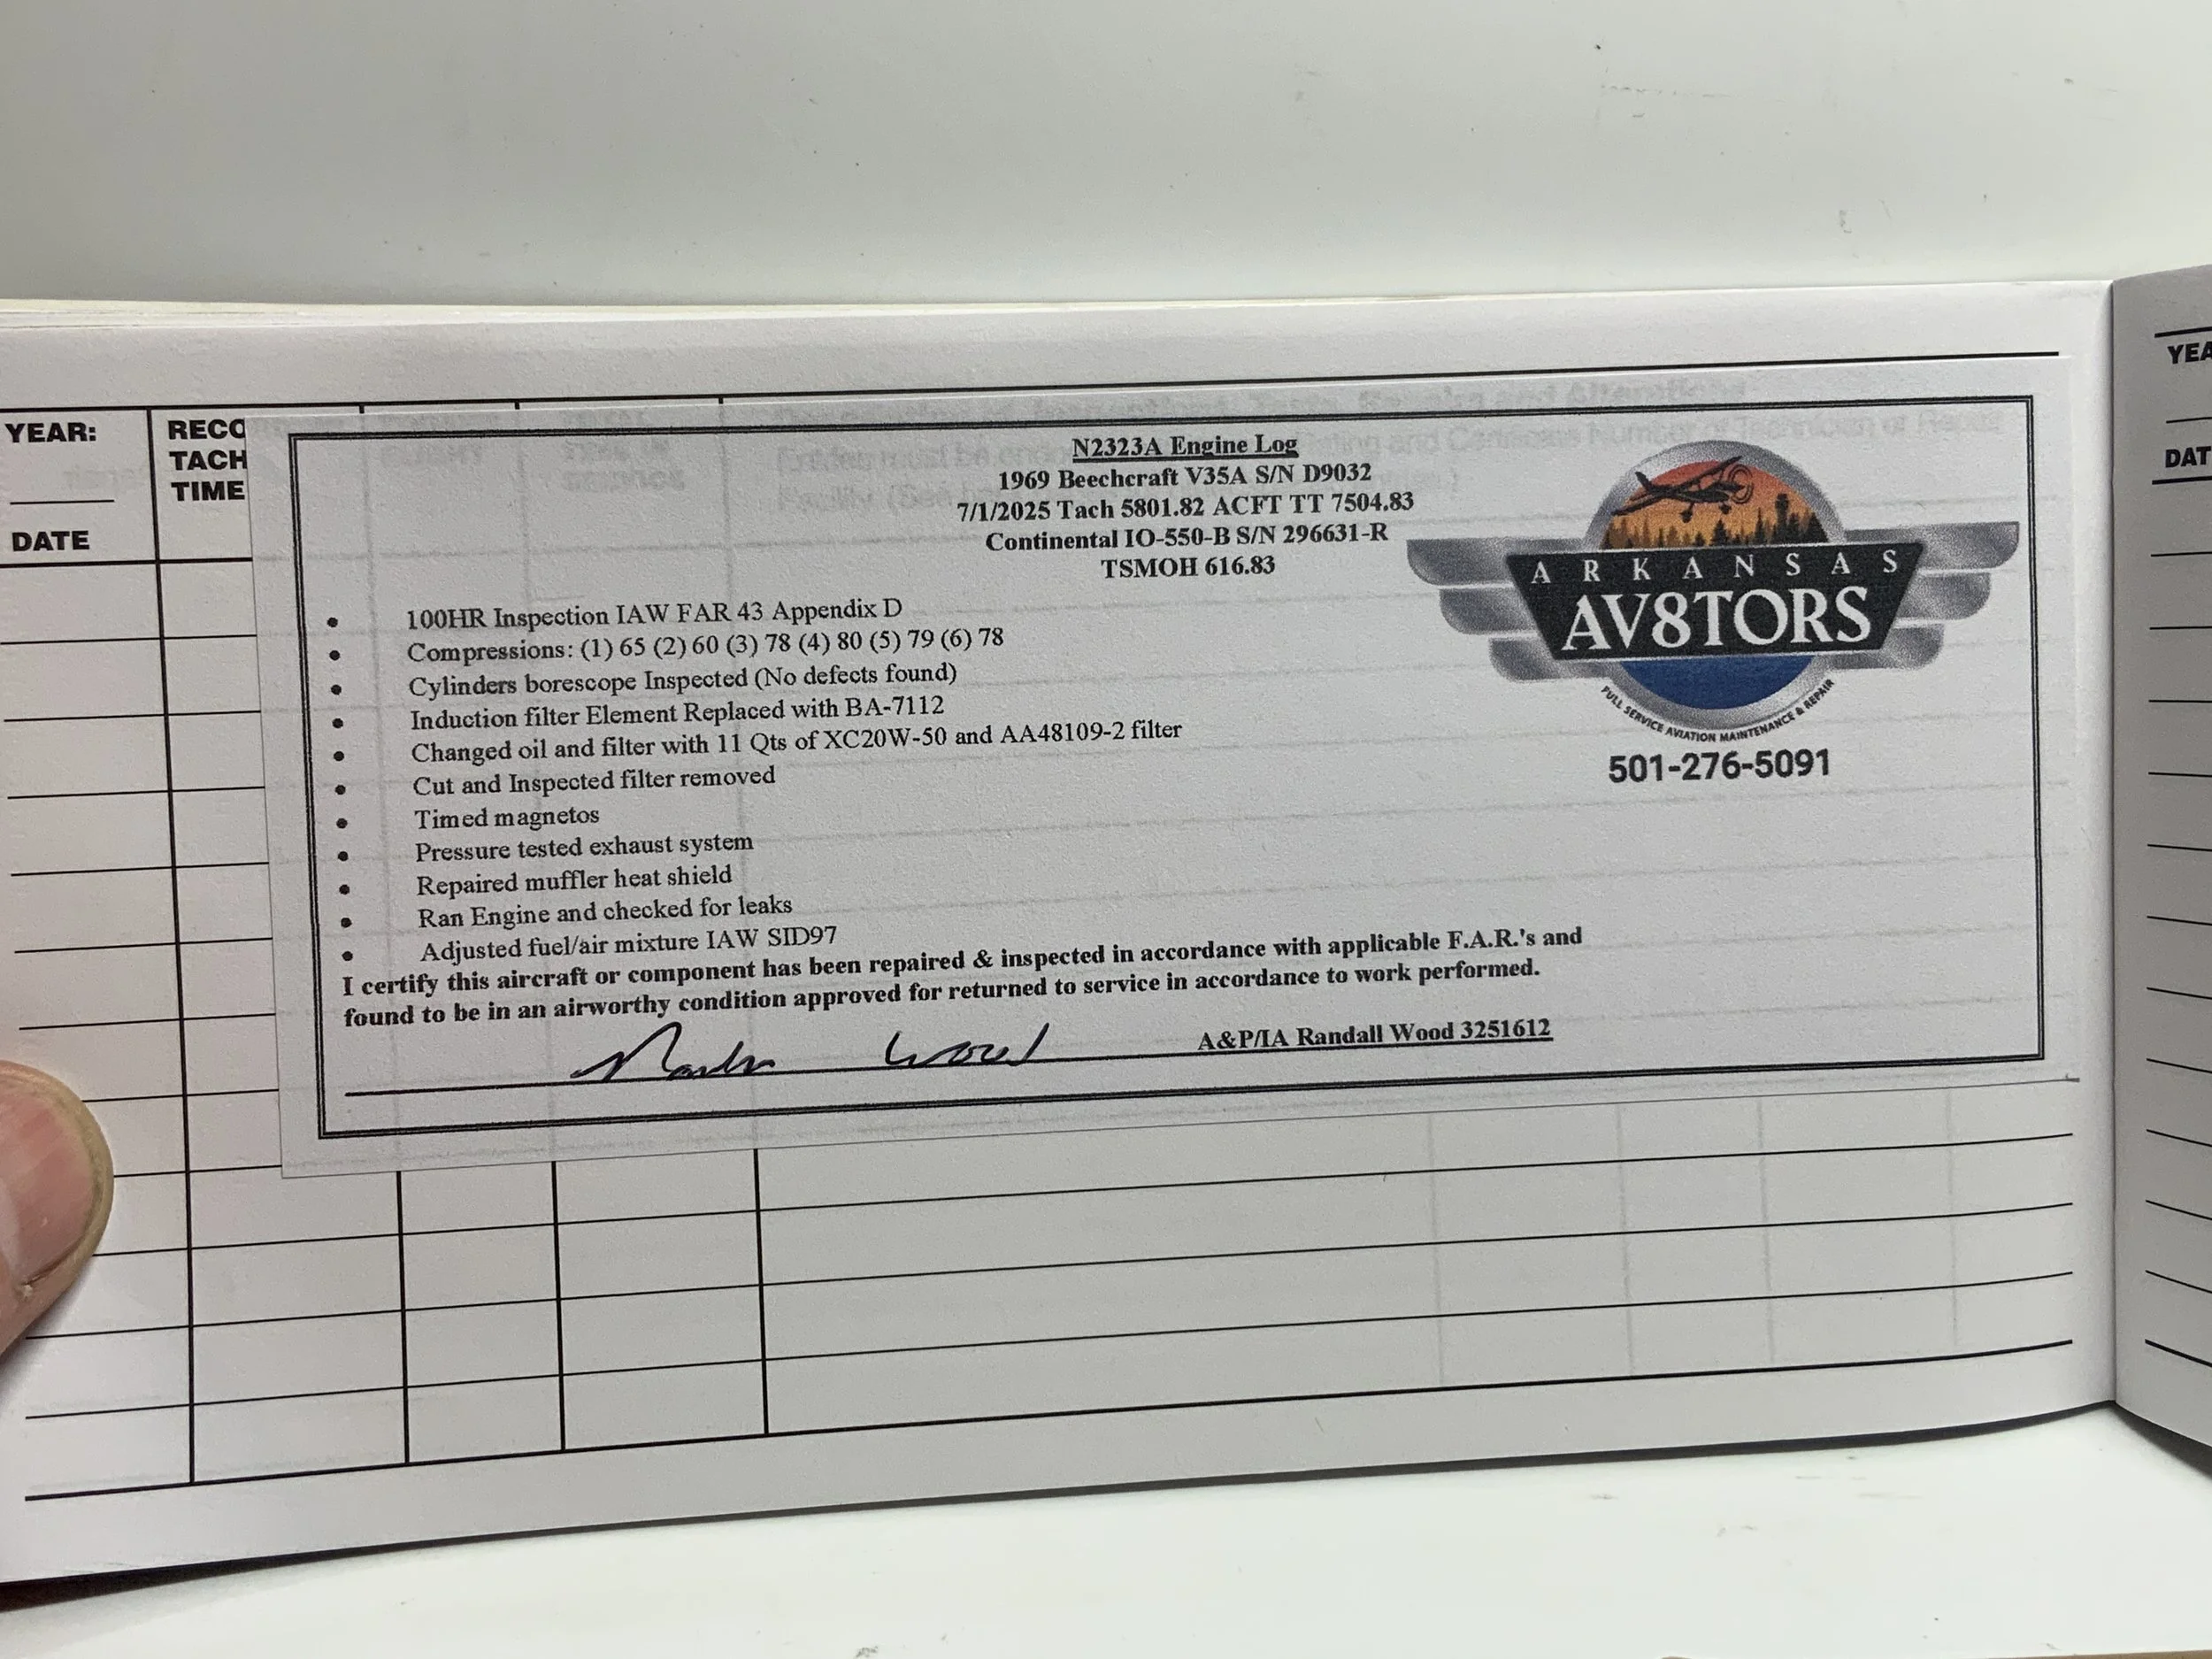 YEAR:
DATE
RECO
TACH
TIME
N2323A Engine Log
1969 Beechcraft V35A S/N D9032
7/1/2025 Tach 5801.82 ACFT TT 7504.83
Continental IO-550-B S/N 296631-R
TSMOH 616.83
• 100HR Inspection IAW FAR 43 Appendix D
• Compressions: (1) 65 (2) 60 (3) 78 (4) 80 (5) 79 (6) 78
• Cylinders borescope Inspected (No defects found)
• Induction filter Element Replaced with BA-7112
• Changed oil and filter with 11 Qts of XC20W-50 and AA48109-2 filter
• Cut and Inspected filter removed
• Timed magnetos
• Pressure tested exhaust system
• Repaired muffler heat shield
• Ran Engine and checked for leaks
• Adjusted fuel/air mixture IAW SID97
I certify this aircraft or component has been repaired & inspected in accordance with applicable F.A.R.'s and
found to be in an airworthy condition approved for returned to service in accordance to work performed.
A&P/IA Randall Wood 3251612
ARKANSAS
AV8TORS
FULL SERVICE AVIATION MAINTENANCE & REPAIR
501-276-5091
YEA
DAT